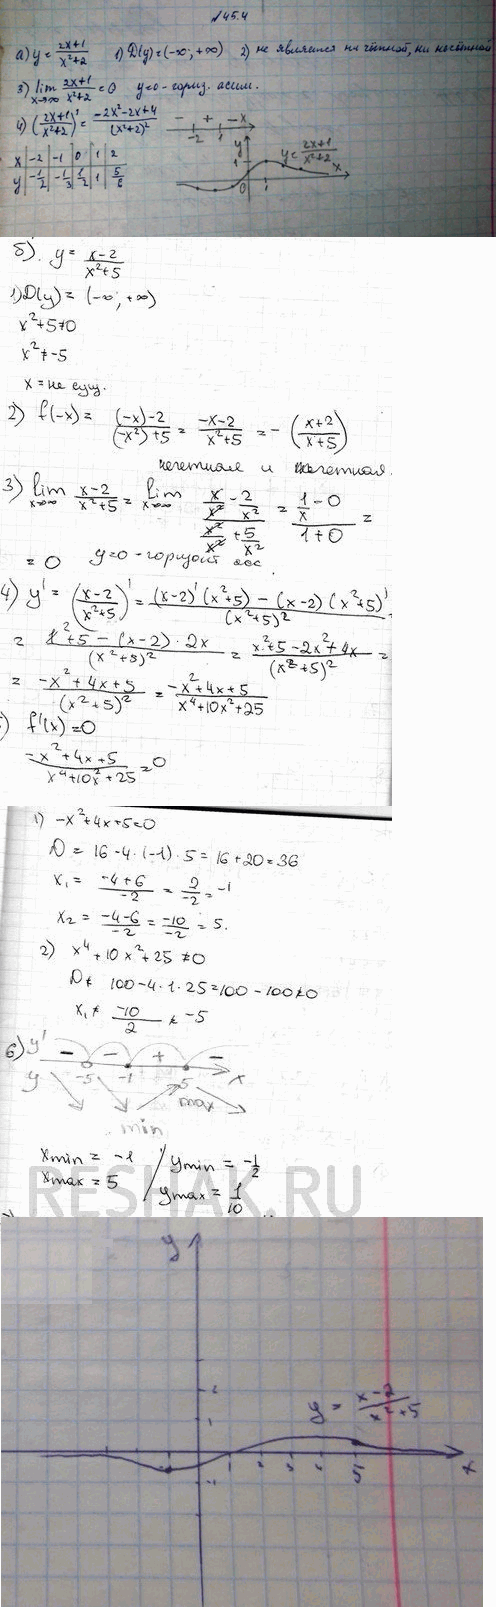 №45.4
а) y = (2x+1)/(x²+2) 1) D(y)=(-∞; +∞) 2) не является ни чётной, ни нечётной
3) lim x→∞ (2x+1)/(x²+2) = 0 y=0 - гориз. асим.
4) ((2x+1)/(x²+2))' = (-2x²-2x+4)/(x²+2)² - + - x
-2 1
x | -2 | -1 | 0 | 1 | 2
y | -1/2 | -1/3 | 1/2 | 1 | 5/6
y 1 y = (2x+1)/(x²+2) x
0 1
б). y = (x-2)/(x²+5)
1) D(y) = (-∞; +∞)
x²+5≠0
x²≠-5
x = не сущ.
2) f(-x) = ((-x)-2)/((-x²)+5) = (-x-2)/(x²+5) = -((x+2)/(x+5))
нечетная и нечетная.
3) lim x→∞ (x-2)/(x²+5) = lim x→∞ (x/x² - 2/x²)/(x²/x² + 5/x²) = (1/x - 0)/(1+0) =
= 0 y=0 - горизонт ось
4) y' = ((x-2)/(x²+5))' = ((x-2)'(x²+5) - (x-2)(x²+5)')/(x²+5)² =
= (x²+5 - (x-2)·2x)/(x²+5)² = (x²+5-2x²+4x)/(x²+5)² =
= (-x²+4x+5)/(x²+5)² = (-x²+4x+5)/(x⁴+10x²+25)
) f'(x)=0
(-x²+4x+5)/(x⁴+10x²+25) = 0
1) -x²+4x+5=0
D = 16-4·(-1)·5 = 16+20=36
x₁ = (-4+6)/(-2) = 2/(-2) = -1
x₂ = (-4-6)/(-2) = -10/(-2) = 5.
2) x⁴+10x²+25≠0
D≠ 100-4·1·25=100-100≠0
x₁ ≠ -10/2 ≠ -5
6) y' - - + -
y -5 -1 5 x
max
min
xmin = -1 / ymin = -1/2
xmax = 5 / ymax = 1/10
RESHAK.RU
y
2
1
y = (x-2)/(x²+5)
1 2 3 4 5 x
-1